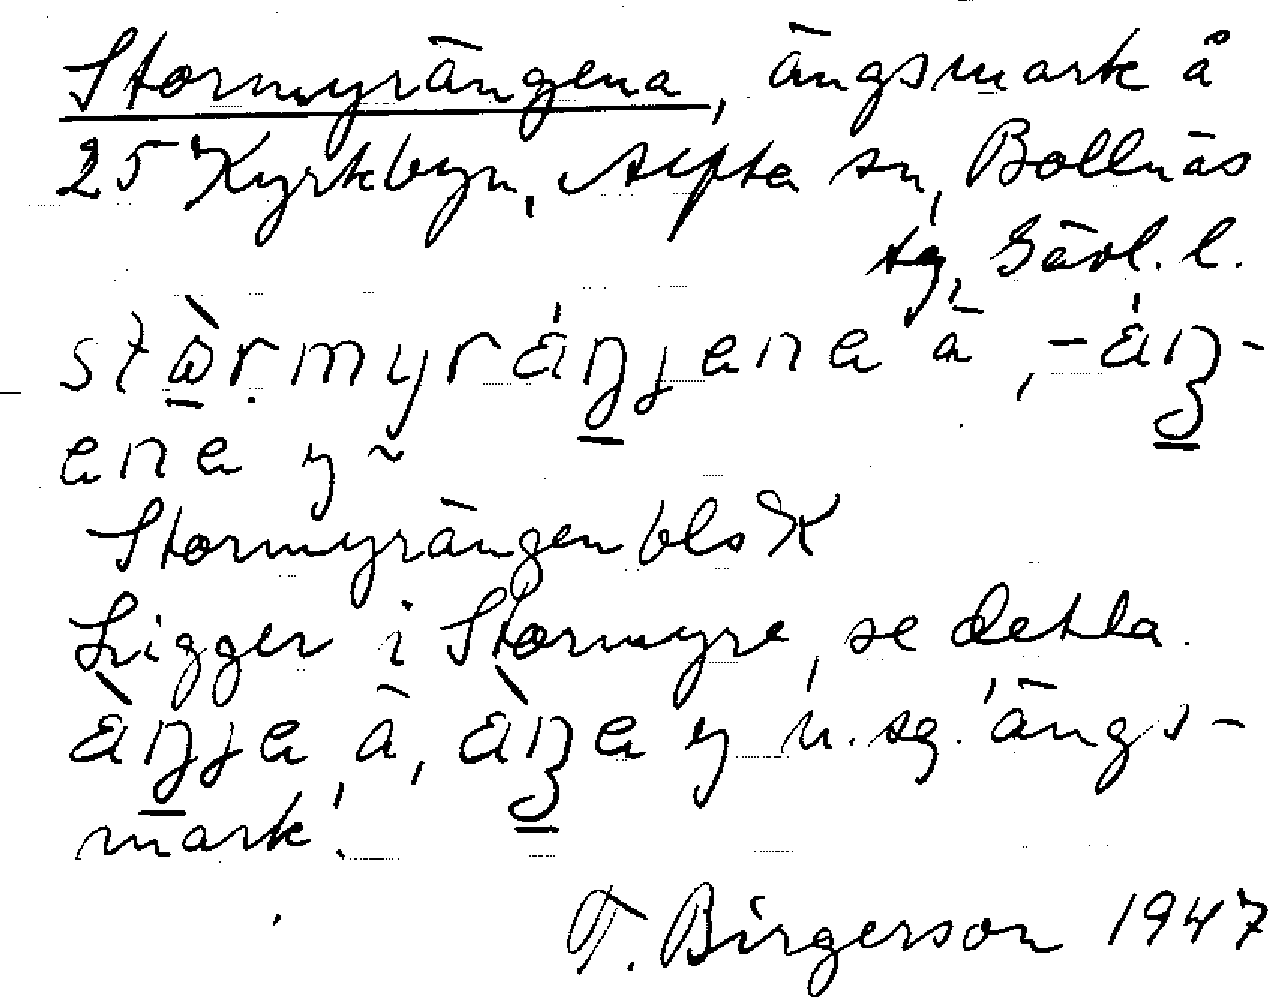 Stormyrängena, ängsmark å
25 Kyrkbyn, Alfta sn, Bollnäs
tg, Gävl. l.
stɷ̀rmyráŋjena ä, -áŋ-
ena y ~
Stormyrängen bls K
Ligger i Stormyra, se detta.
àŋja ä, àŋa y n. sg. 'ängs-
mark'.
T. Birgerson 1947